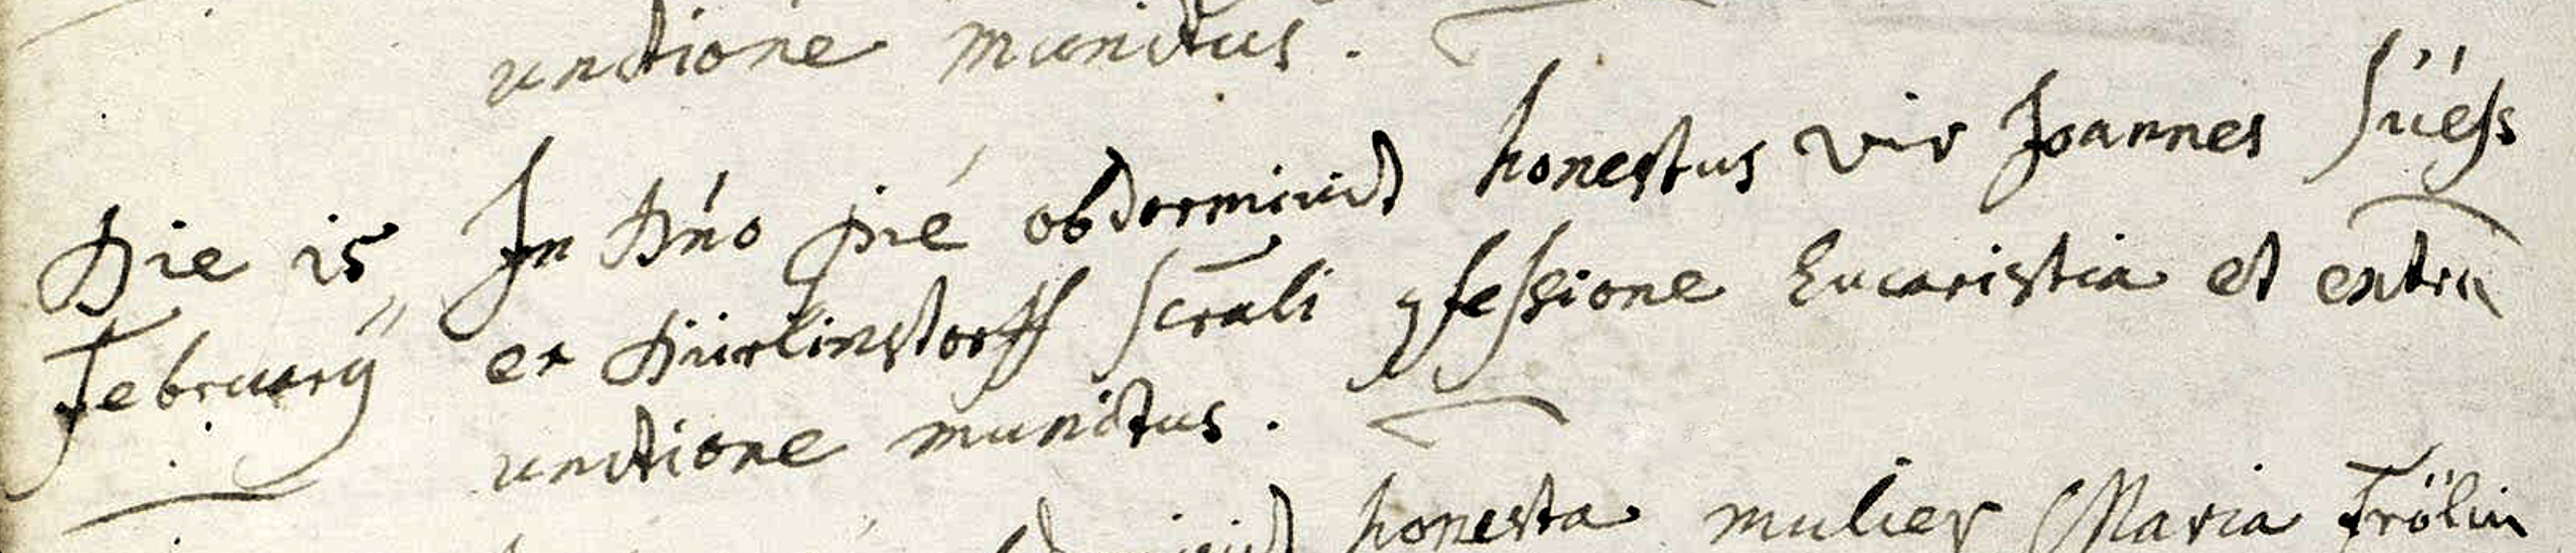 unctione munitus.
Die 15 In Dn̄o pié obdormivit honestus vir Joannes Süess
Februarÿ ex Dürlinstorff scr̄ali ꝯfessione Eucaristia et extra
unctione munitus.
honesta mulier Maria Frölin